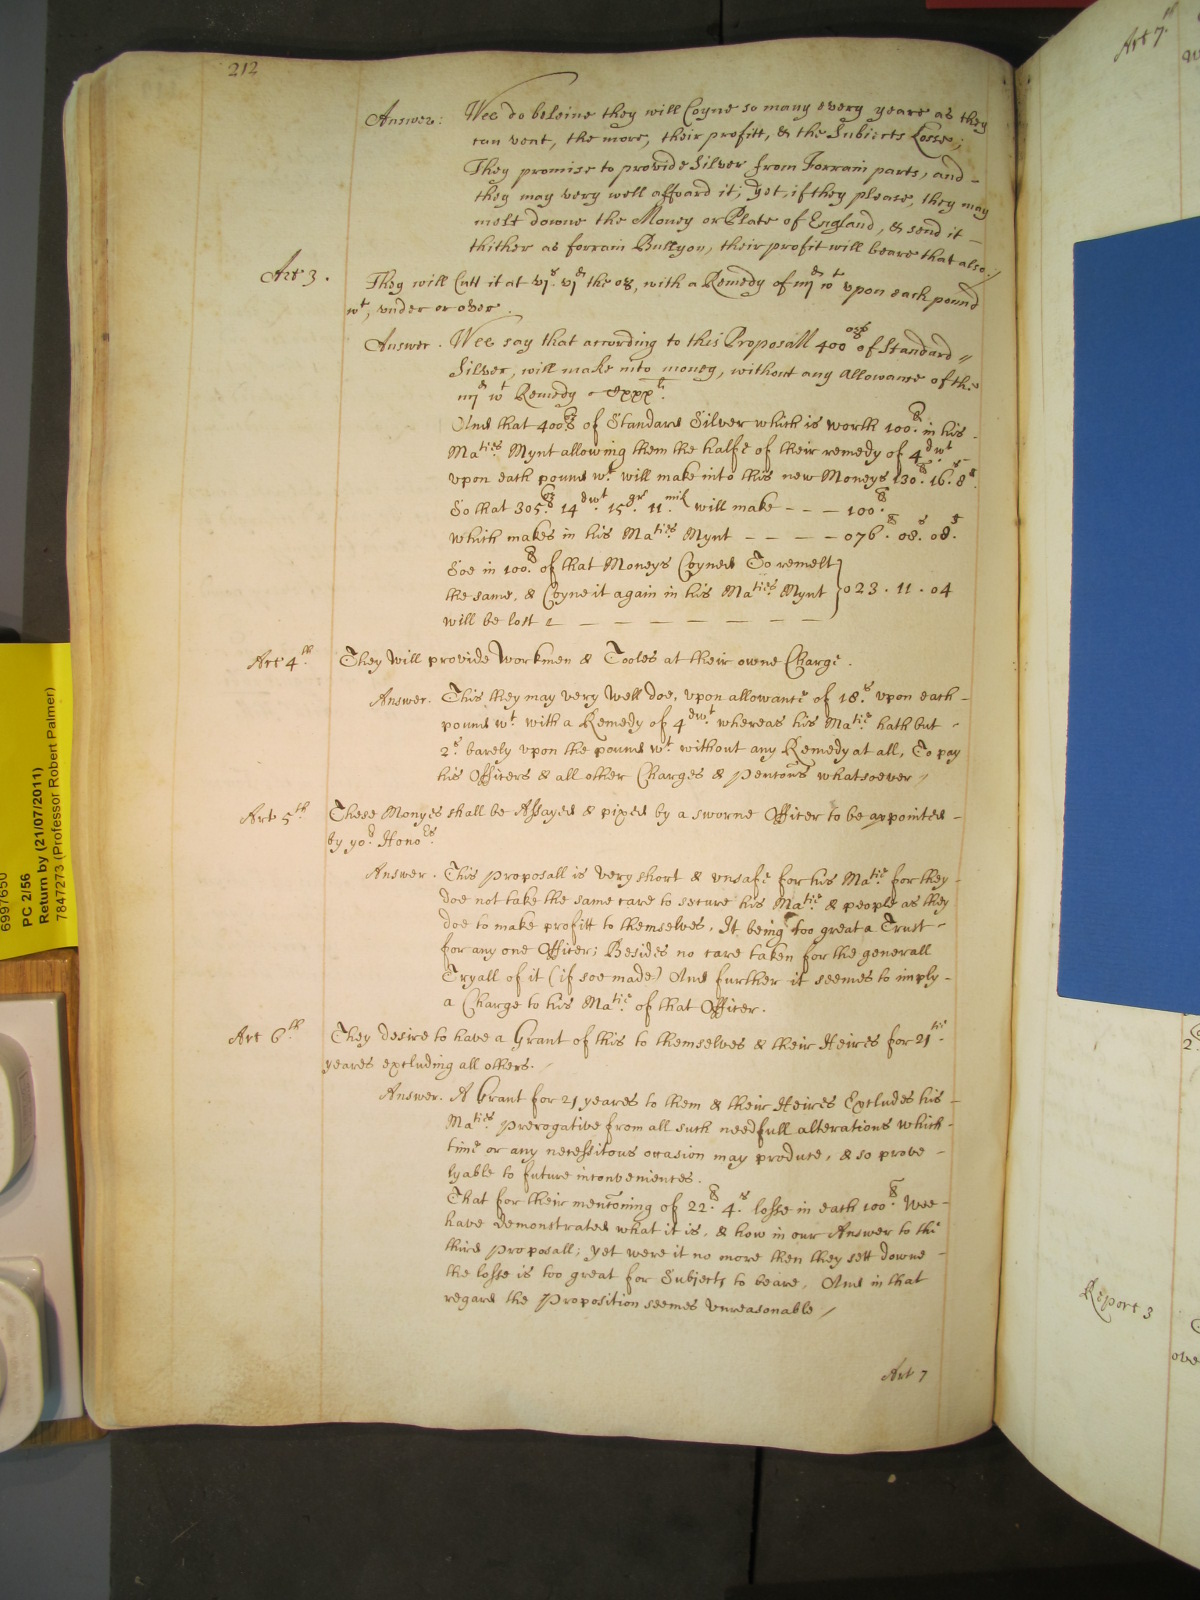 212
Answer: Wee do beleive they will Coyne so many every yeare as they
can vent, the more, their profitt, & the Subiects Losse;
They promise to provide Silver from Forrain parts, and –
they may very well affoard it; yet, if they please, they may
melt downe the Money or Plate of England, & send it –
thither as forrain Bullyon, their profit will beare that also /
Art 3. They will Cutt it at vjs. vjd the oz, with a Remedy of iiij d wt upon each pound
wt, under or over.
Answer. Wee say that according to this Proposall 400 ozs of Standard //
Silver, will make into money, without any allowance of the
iiij d wt Remedy Cxxx li.
And that 400 oz of Standard Silver which is worth 100li in his
Maties Mynt allowing them the halfe of their remedy of 4 dwt
upon each pound wt will make into this new Moneys 130li. 16s. 8d.
So that 305 oz. 14 dwt. 15 gr. 11 mit will make – – – 100li.
which makes in his Maties Mynt – – – – 076li. 08s. 08d.
Soe in 100li of that Moneys Coyned To remelt
the same, & Coyne it again in his Maties Mynt } 023 . 11 . 04
will be lost – – – – – – – –
Art 4th. They will provide Workmen & Tooles at their owne Charge.
Answer. This they may very well doe, upon allowance of 18s upon each –
pound wt. with a Remedy of 4 dwt. whereas his Matie hath but –
2s. barely upon the pound wt. without any Remedy at all, To pay
his Officers & all other Charges & Pentons whatsoever /
Art 5th These Monyes shall be Assayed & pixed by a sworne Officer to be appointed –
by yor Honors.
Answer. This Proposall is very short & unsafe for his Matie for they –
doe not take the same care to secure his Matie & people as they
doe to make profitt to themselves, It being too great a Trust –
for any one Officer; Besides no care taken for the generall
Tryall of it (if soe made) And further it seemes to imply –
a Charge to his Matie of that Officer.
Art 6th They desire to have a Grant of this to themselves & their Heires for 21tie
yeares excluding all others. /
Answer. A Grant for 21 yeares to them & their Heires Excludes his –
Maties Prerogative from all such needfull alterations which –
time or any necessitous occasion may produce, & so prove –
lyable to future inconveniences.
That for their mentoning of 22li. 4s. losse in each 100li Wee –
have demonstrated what it is, & how in our Answer to the
third Proposall; yet were it no more then they sett downe –
the losse is too great for Subjects to beare, And in that
regard the Proposition seemes unreasonable /
Art 7
Art 7th
Report 3
6997650
PC 2/56
Return by (21/07/2011)
7847273 (Professor Robert Palmer)